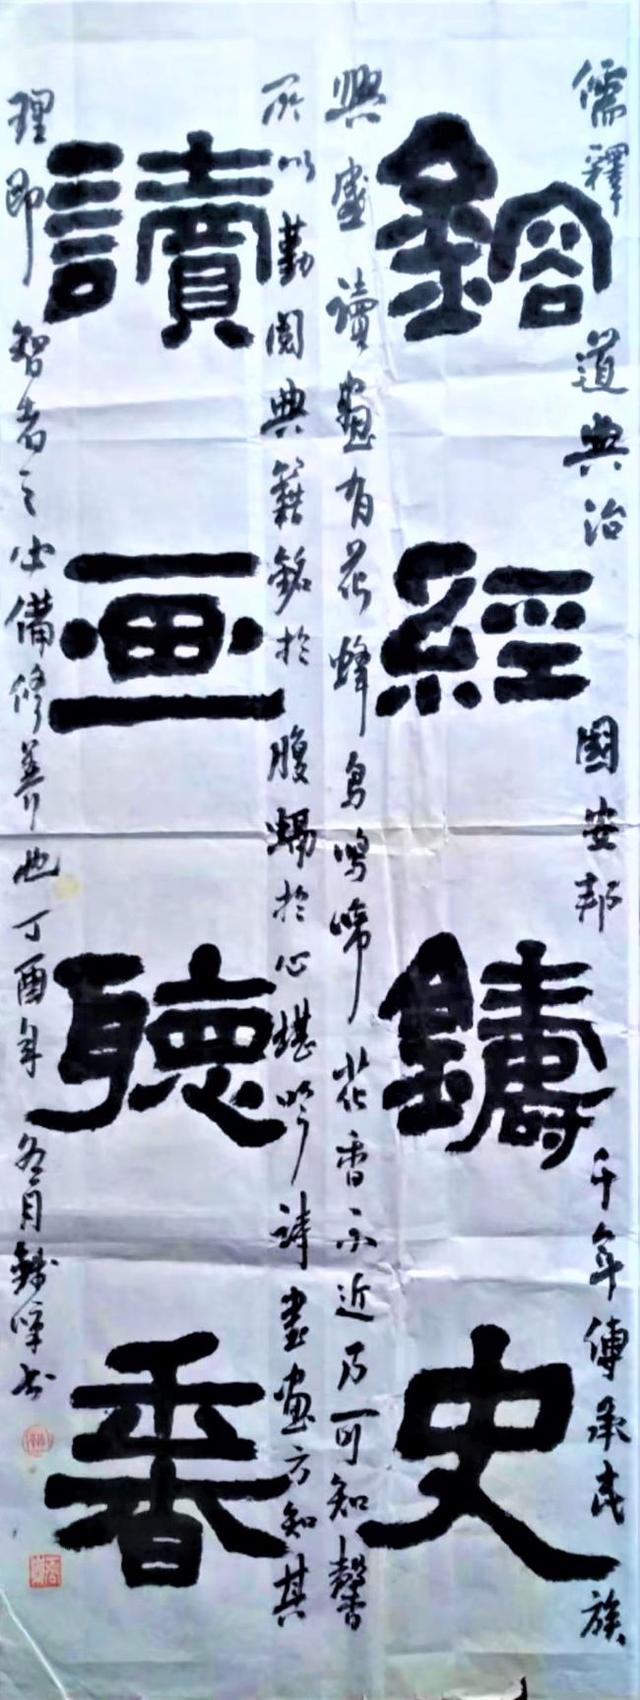 鎔經鑄史
讀画聽香
儒釋道典治國安邦千年傳承民族
興盛读畫有花蜂鳥鸣啼花香不近乃可知馨
所以勤閱典籍銘於腹於心堪吟诗書畫方知其
理即智者之必備修養也丁酉年冬月书